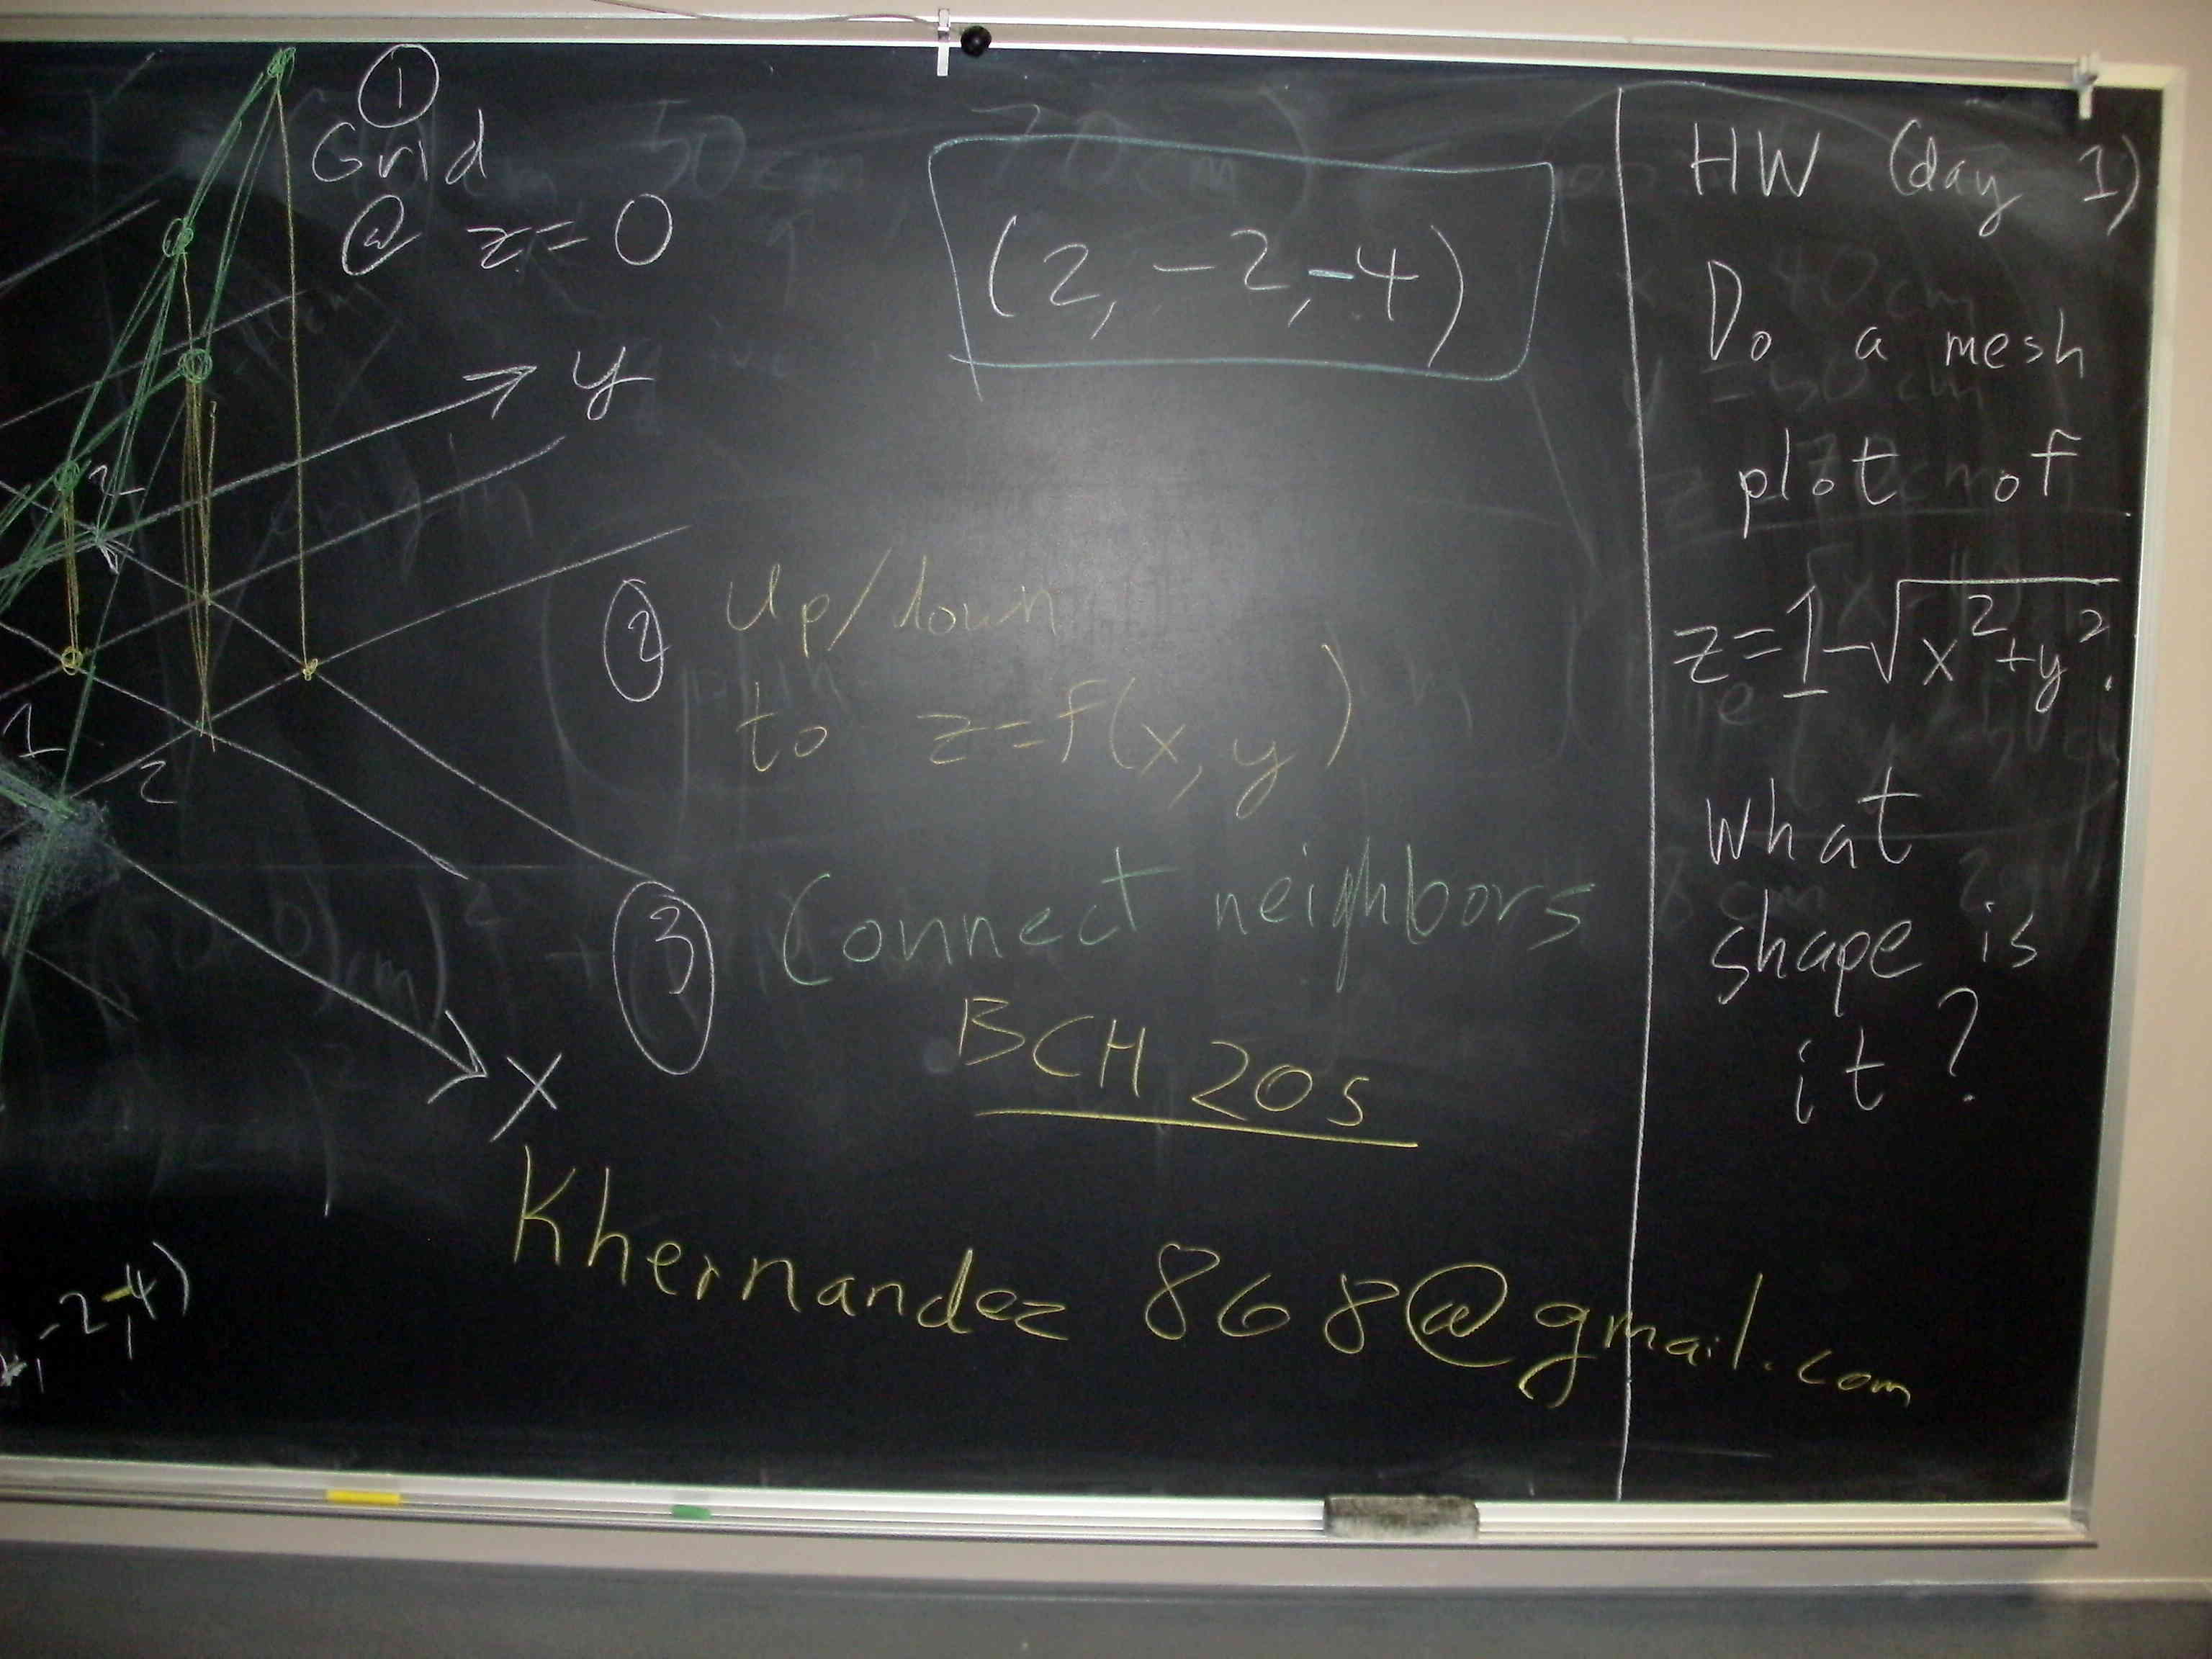 ①
Grid
@ z=0
y
2
1
2
x
(2, -2, -4)
② Up/down
to z=f(x,y)
③ Connect neighbors
BCH 205
Khernandez 868@gmail.com
, -2, -4)
HW (day 1)
Do a mesh
plot of
z=1-√x²+y².
What
shape is
it?